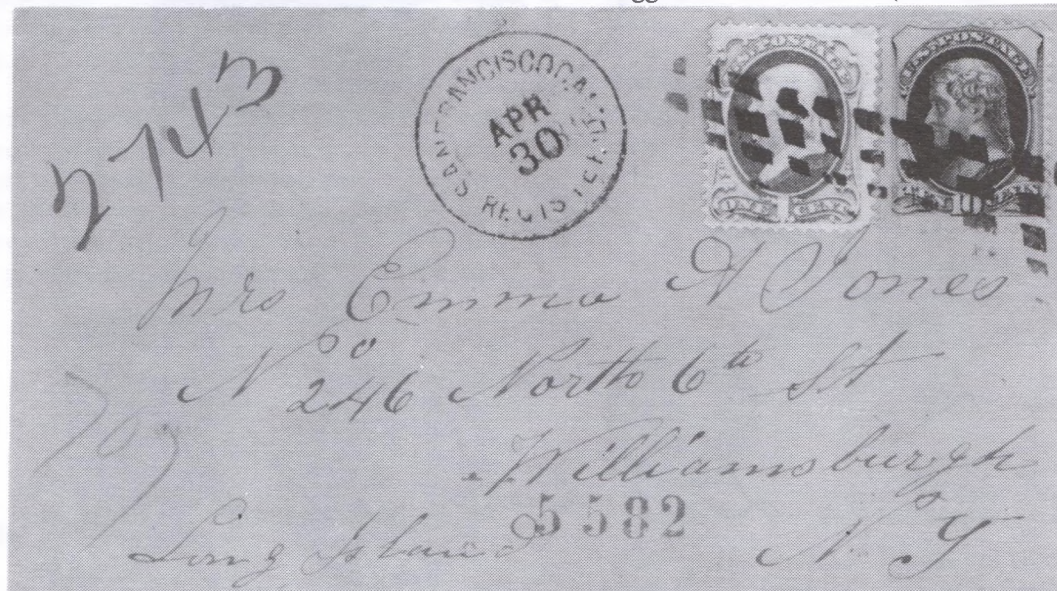 2743
SAN FRANCISCO CAL.
APR
30
REGISTERED
U.S. POSTAGE
U.S. POSTAGE
10
Mrs Emma A Jones.
No 246 North 6th St
Williamsburgh
5582
Long Island N.Y